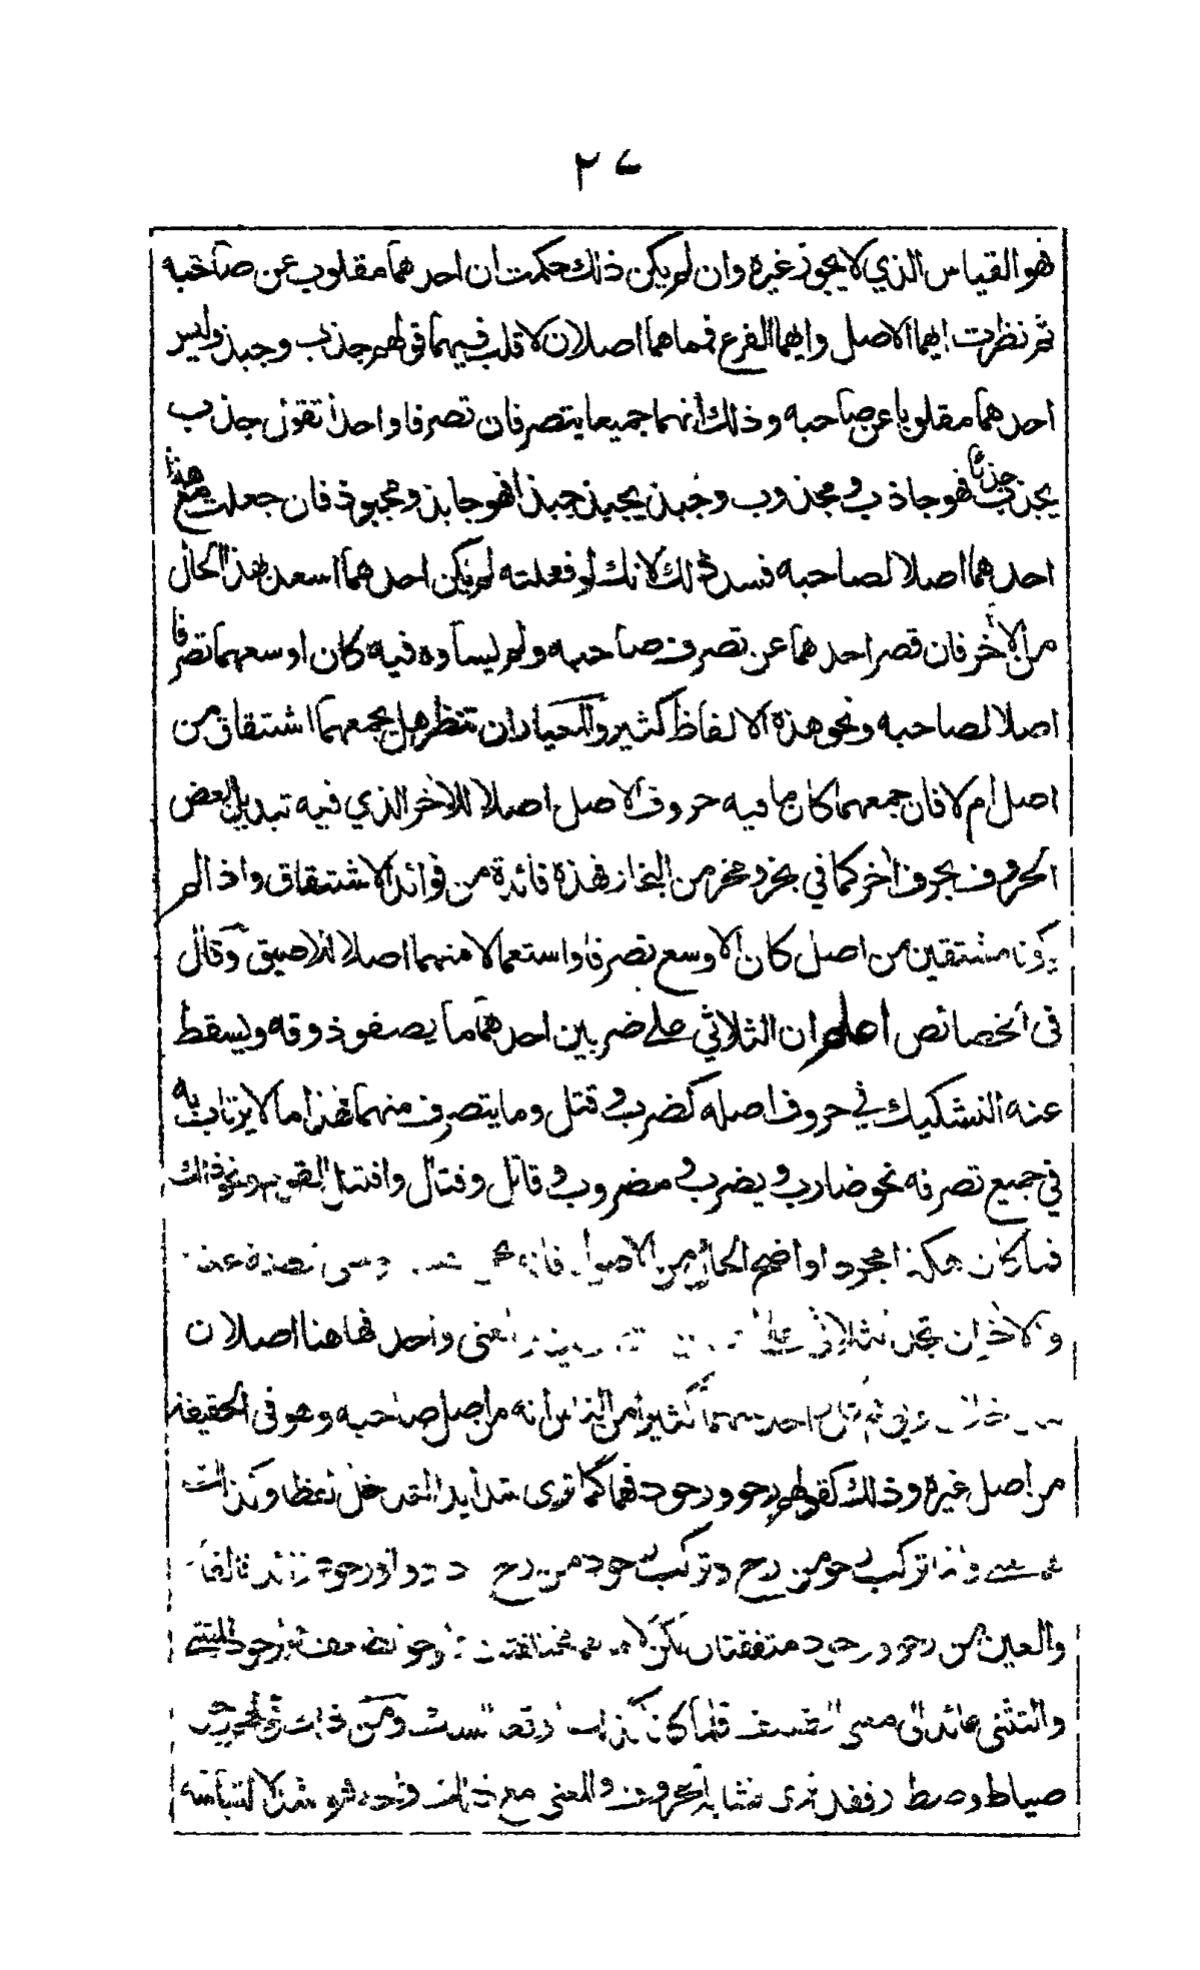 ٢٧
فهو القياس الذي لا يجوز غيره وان لم يكن ذلك حكمت ان احدهما مقلوب عن صاحبه
ثم نظرت ايهما الاصل وايهما الفرع فمما هما اصلان لا قلب فيهما قولهم جذب وجبذ وليس
احدهما مقلوبا عن صاحبه وذلك انهما جميعا يتصرفان تصرفا واحدا تقول جذب
يجذب جذبا فهو جاذب ومجذوب وجبذ يجبذ جبذا فهو جابذ ومجبوذ فان جعلت مع هذا
احدهما اصلا لصاحبه فسد ذلك لانك لو فعلته لم يكن احدهما اسعد بهذا الحال
من الاخر فان قصر احدهما عن تصرف صاحبه ولم يساوه فيه كان اوسعهما تصرفا
اصلا لصاحبه ونحو هذه الالفاظ كثير والمحيار ان تنظر هل يجمعهما اشتقاق من
اصل ام لا فان جمعهما كان ما فيه حروف الاصل اصلا للاخر الذي فيه تبديل بعض
الحروف بحرف اخر كما في بخر ومخر من البخار فهذه فائدة من فوائد الاشتقاق واذا لم
يكونا مشتقين من اصل كان الاوسع تصرفا واستعمالا منهما اصلا للاضيق وقال
في الخصائص اعلم ان الثلاثي على ضربين احدهما ما يصفو ذوقه ويسقط
عنه التشكيك في حروف اصله كضرب وقتل وما يتصرف منهما فهذا ما لا يرتاب به
في جميع تصرفه نحو ضارب ويضرب ومضروب وقاتل وقتال واقتتل القوم ونحو ذلك
فما كان هكذا مجردا واضح الحال من الاصول فانه
والاخر ان تجد الثلاثي على معنى واحد فهاهنا اصلان
احدهما كثيرا من الناس انه من اصل صاحبه وهو في الحقيقة
من اصل غيره وذلك كقولهم رخو ورخود فهما كما ترى شديدا التداخل لفظا وكذلك
وانما تركيب رخو من رخ وتركيب رخود من رخ د وواو رخود زائد فالفاء
والعين من رخو ورخود متفقتان لكن لاماهما مختلفتان
والتثني عائد الى معنى الضعف فلما كان كذلك ومن ذلك قولهم رجل
ضياط وضيطار فقد ترى تشابه الحروف والمعنى مع ذلك واحد فهو اشد لالتباسه